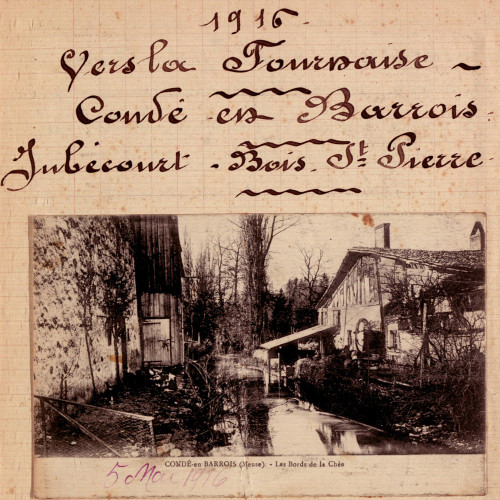 1916.
Vers la Fournaise -
Condé en Barrois.
Jubécourt - Bois. St Pierre -
CONDÉ-en BARROIS (Meuse). - Les Bords de la Chée
5 Mai 1916